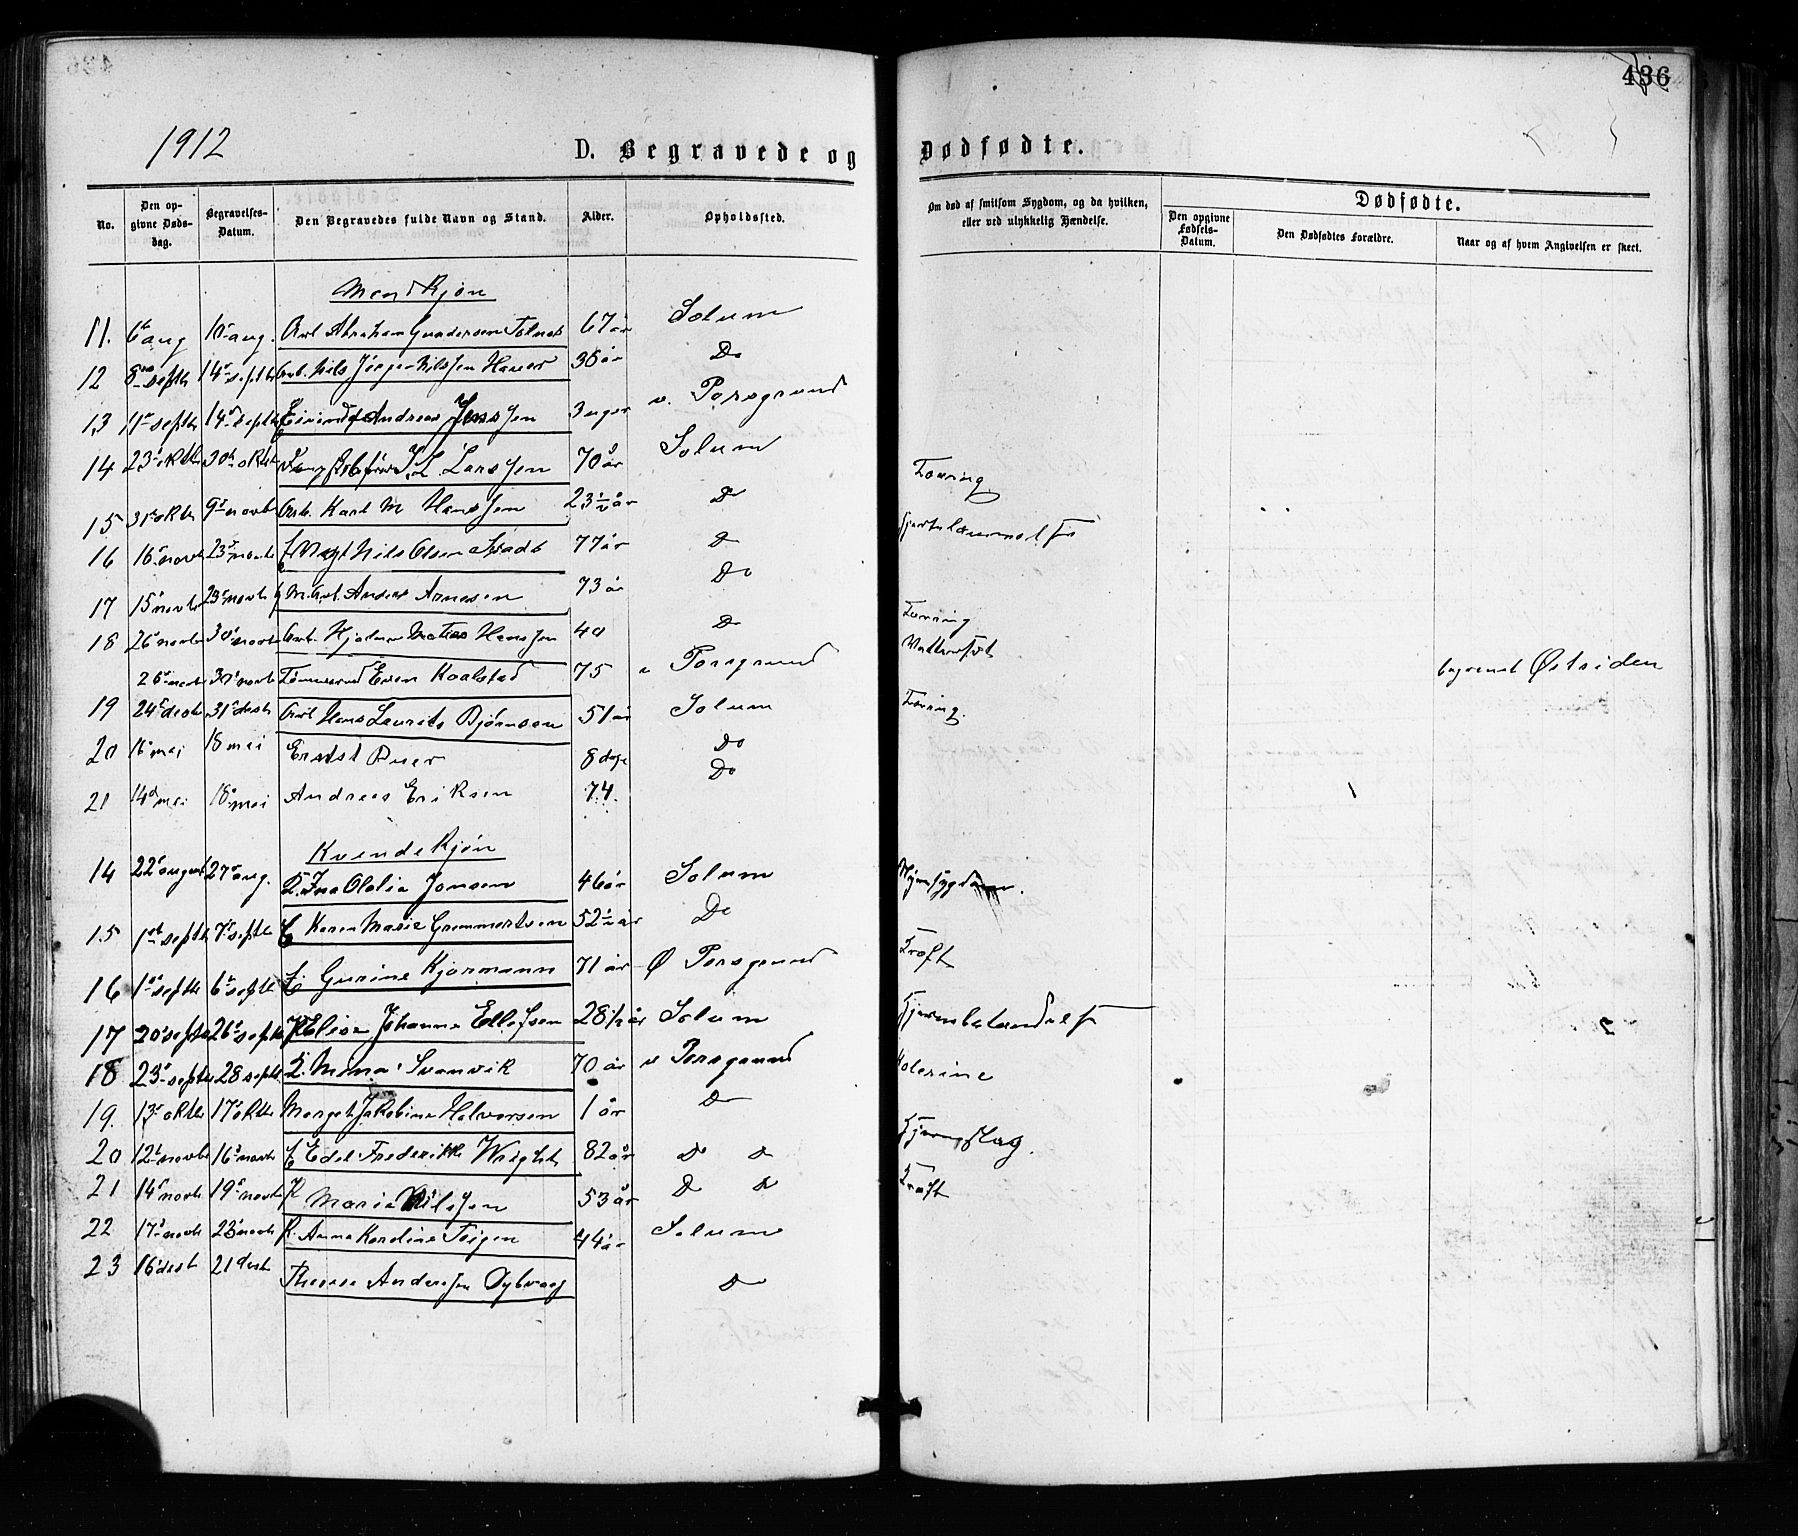 436
1912
D. Begravede og Dødfødte.
No.
Den opgivne Dødsdag.
Begravelses-Datum.
Den Begravedes fulde Navn og Stand.
Alder.
Opholdssted.
Om død af smitsom Sygdom, og da hvilken, eller ved ulykkelig Hændelse.
Dødfødte.
Den opgivne Fødsels-Datum.
Den Dødfødtes Forældre.
Naar og af hvem Angivelsen er skeet.
Mandkjøn
11. 6t aug 10 aug. Arb Abraham Gundersen Tolnes 67 år Solum
12 8 septb 14 septb Arb. Nils Nilssen 36 år Do
13 11 septb 14 septb Eivind Andreas Jenssen 3 uger v. Porsgrund
14 23 oktb 30 oktb L. Larssen 70 år Solum
15 31 oktb 9 novb Arb. Karl M Hanssen 23 1/2 år Do Tæring
16 16 novb 23 novb Nils Olsen 77 år Do
17 15 novb 23 novb Anders Arnesen 73 år Do
18 26 novb 30 novb Arb. Hjalmar Matias Hanssen 40 Do Tæring
26 novb 30 novb Tømmermand Even Kaalstad 75 v Porsgrund Vattersot begravet Østsiden
19 24 desb 31 desb Arb Hans Laurits Bjørnsen 51 år Solum Tæring.
20 16 mei 18 mei Ernst Buer 8 dage Do
21 14 mei 18 mei Andreas Eriksen 74. Do
Kvindekjøn
14 22 august 27 aug. K. Ina Olalia Jonsen 46 år Solum Nyresygdom.
15 1st septb 7 septb E Karen Marie Grommertsen 52 1/2 år Do
16 1 septb 6 septb E. Gurine Kjormann 71 år Ø Porsgrund Kræft
17 20 septb 26 septb K Elise Johanne Ellefsen 28 1/2 år Solum Hjernebetændelse
18 23 septb 28 septb E. Mina Svanvik 70 år v Porsgrund Kolerine
19. 13 oktb 17 oktb Margot Jakobine Halvorsen 1 år Do
20 12 novb 16 novb E Edel Fredrikke Wright 82 år Do Do Hjerneslag.
21 14 novb 19 novb K Marie Nilssen 53 år Do Do Kræft
22 17 novb 23 novb K. Anna Karoline Teigen 44 år Solum
23 16 desb 21 desb Therese Anderssen Dybvaag Do